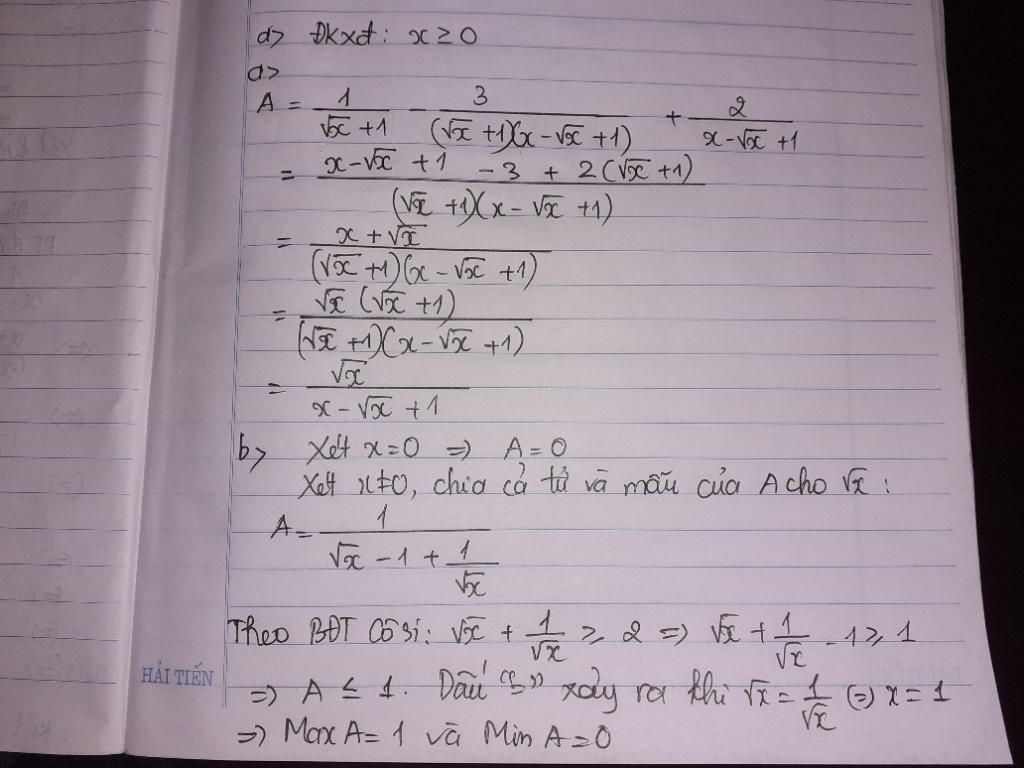 a> Đkxđ: x ≥ 0
a>
A = 1/(√x + 1) - 3/((√x + 1)(x - √x + 1)) + 2/(x - √x + 1)
= (x - √x + 1 - 3 + 2(√x + 1))/((√x + 1)(x - √x + 1))
= (x + √x)/((√x + 1)(x - √x + 1))
= (√x (√x + 1))/((√x + 1)(x - √x + 1))
= √x/(x - √x + 1)
b> Xét x = 0 => A = 0
Xét x ≠ 0, chia cả tử và mẫu của A cho √x :
A = 1/(√x - 1 + 1/√x)
Theo BĐT Cô si: √x + 1/√x ≥ 2 => √x + 1/√x - 1 ≥ 1
HẢI TIẾN
=> A ≤ 1. Dấu "=" xảy ra khi √x = 1/√x (=) x = 1
=> Max A = 1 và Min A = 0